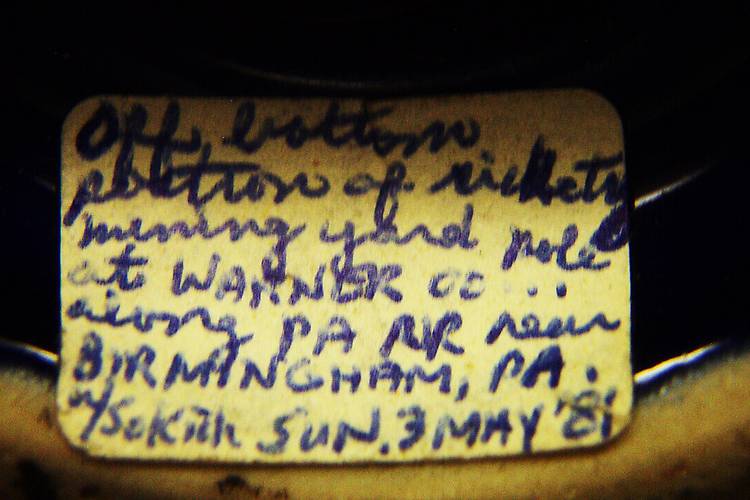 Off bottom
portion of rickety
mining yard pole
at WARNER CO...
along PA RR near
BIRMINGHAM, PA.
SUN. 3 MAY '81